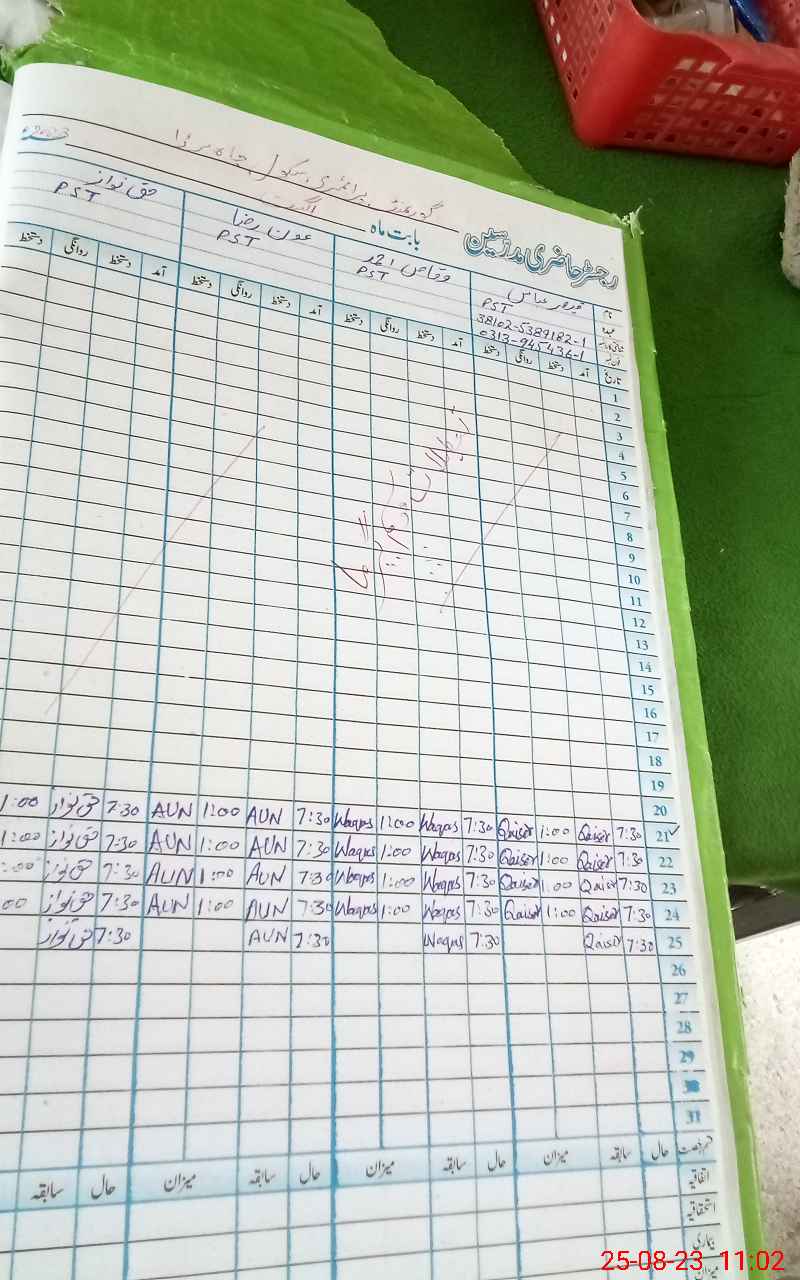 2023
گورنمنٹ پرائمری سکول چاہ
رجسٹر حاضری مدرسین بابت ماہ اگست
نام قیصر عباس وقاص احمد عون رضا حق نواز
عہدہ PST PST PST PST
38102-5389182-1
0313-945434-1
تاریخ آمد دستخط روانگی دستخط آمد دستخط روانگی دستخط آمد دستخط روانگی دستخط آمد دستخط روانگی دستخط
1
2
3
4
5
6
7
8
9
10
11
12
13
14
15
16
17
18
19
20
تعطیلات موسم گرما
21 7:30 Qaiser 1:00 Qaiser 7:30 Waqas 1:00 Waqas 7:30 AUN 1:00 AUN 7:30 حق نواز 1:00
22 7:30 Qaiser 1:00 Qaiser 7:30 Waqas 1:00 Waqas 7:30 AUN 1:00 AUN 7:30 حق نواز 1:00
23 7:30 Qaiser 1:00 Qaiser 7:30 Waqas 1:00 Waqas 7:30 AUN 1:00 AUN 7:30 حق نواز :00
24 7:30 Qaiser 1:00 Qaiser 7:30 Waqas 1:00 Waqas 7:30 AUN 1:00 AUN 7:30 حق نواز 00
25 7:30 Qaiser 7:30 Waqas 7:30 AUN 7:30 حق نواز
26
27
28
29
30
31
قسم رخصت حال سابقہ میزان حال سابقہ میزان حال سابقہ میزان حال سابقہ
اتفاقیہ
استحقاقیہ
بیماری
میزان
25-08-23 11:02